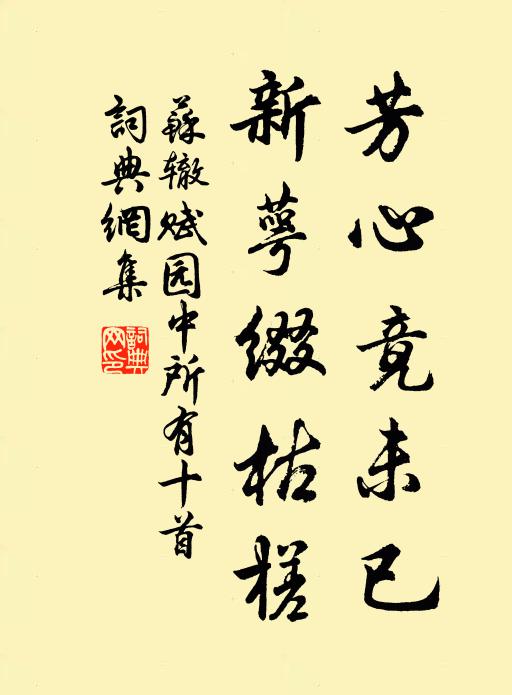 芳心竟未已
新萼缀枯槎
蘇辙赋园中所有十首
詞典網集
詞典
网印